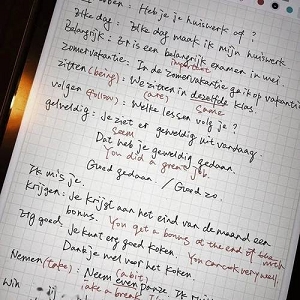 Heb je je huiswerk af?
Elke dag: Elke dag maak ik mijn huiswerk
Belangrijk: Er is een belangrijk examen in mei
important
zomervakantie: In de zomervakantie ga ik op vakantie
zitten (being): We zitten in dezelfde klas.
(are) same
volgen (follow): Welke lessen volg je?
geweldig: Je ziet er geweldig uit vandaag
seem
Dat heb je geweldig gedaan.
You did a great job
Goed gedaan. / Goed zo.
Ik mis je.
Krijgen: Je krijgt aan het eind van de maand een
bonus. You get a bonus at the end of the month
Erg goed: Je kunt erg goed koken. You can cook very well.
Dank je wel voor het koken.
Nemen (take): Neem even pauze.
(a bit)
take a break